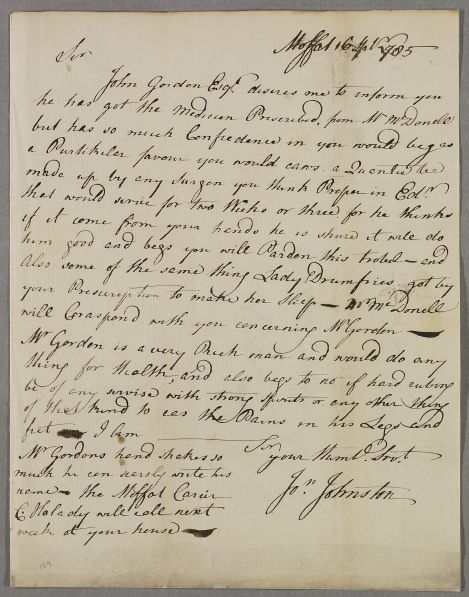 Moffat 16 Apl 1785
Sir
John Gordon Esqr. desires me to inform you
he has got the Medicien Prescribed, from Mr McDonell
but has so much Confiedence in you would beg as
a Purtikiler favour you would caws a Quantie tee
made up by any Surgon you think Proper in Edr.
that would serve for two Weeks or three for he thinks
if it come from your hands he is shure it will do
him good and begs you will Pardon this trobel — and
Also some of the same thing Lady Drumfries got by
your Prescription to make her Sliep — Mr McDonell
will Coraspond with you concerning Mr Gordon —
Mr Gordon is a very Rich man and would do any
thing for Health, and also begs to no if hard rubing
be of any servise with strong spirits or any other thing
of that kind to eas the Pains in his Legs and
fiet — I am
Sir
your Humbl. Servt.
Jon. Johnston
Mr Gordons hand shakes so
much he can scarsly write his
name — the Moffat Carier
C. Halady will call next
week at your house —
184